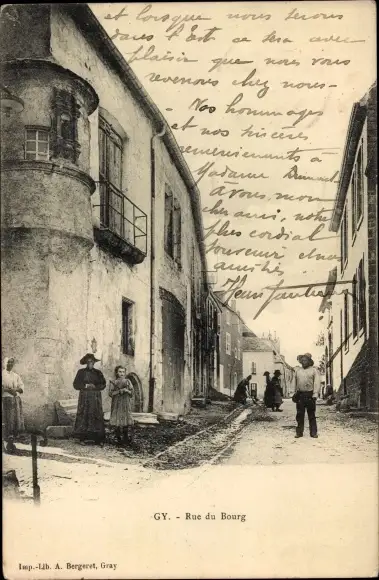 et lorsque nous serons
dans l'Est ce sera avec
plaisir que nous vous
revenons chez nous -
Nos hommages
et nos sincères
remerciements à
Madame
à vous, mon
cher ami, notre
plus cordial
souvenir et nos
amitiés
GY. - Rue du Bourg
Imp.-Lib. A. Bergeret, Gray